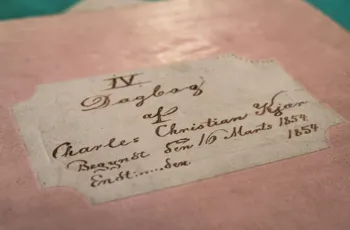 IV
Dagbog
af
Charles Christian Kjær
Begyndt den 16 Marts 1854
Endt......den 1854